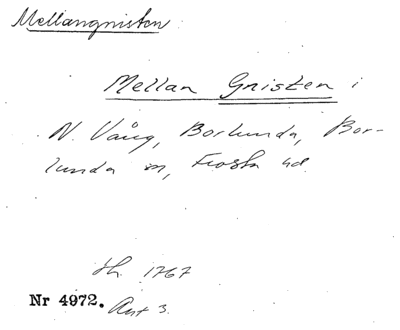 Mellangnisten
Mellan Gnisten i
N. Vång, Borlunda, Bor-
lunda sn, Frosta hd.
Sh. 1767
Nr 4972. Akt 3.